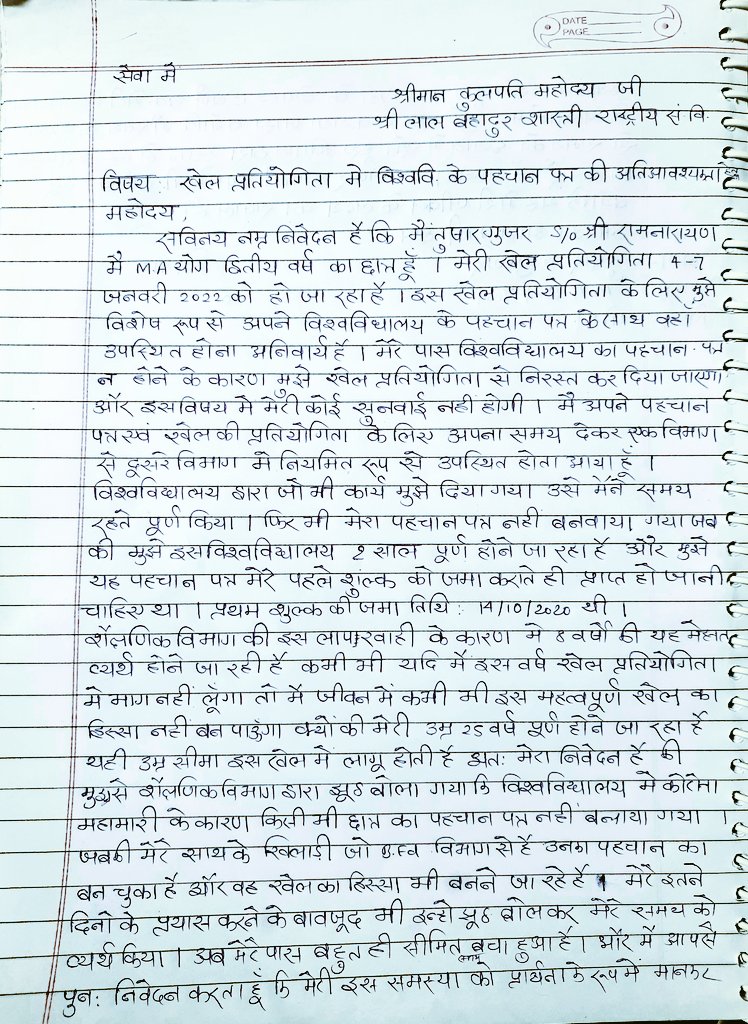 DATE
PAGE
सेवा में
श्रीमान कुलपति महोदय जी
श्री लाल बहादुर शास्त्री राष्ट्रीय सं.वि.
विषय : खेल प्रतियोगिता मे विश्ववि. के पहचान पत्र की अतिआवश्यकता हेतु
महोदय,
सविनय नम्र निवेदन है कि मैं तुषार गुजर S/o श्री रामनारायण
मै M.A योग द्वितीय वर्ष का छात्र हूँ । मेरी खेल प्रतियोगिता 4-7
जनवरी 2022 को हो जा रहा है । इस खेल प्रतियोगिता के लिए मुझे
विशेष रूप से अपने विश्वविधालय के पहचान पत्र के साथ वहा
उपस्थित होना अनिवार्य है । मेरे पास विश्वविधालय का पहचान पत्र
न होने के कारण मुझे खेल प्रतियोगिता से निरस्त कर दिया जाएगा
और इस विषय मे मेरी कोई सुनवाई नही होगी । मै अपने पहचान
पत्र एवं खेल की प्रतियोगिता के लिए अपना समय देकर एक विभाग
से दूसरे विभाग मे नियमित रूप से उपस्थित होता आया हूँ ।
विश्वविधालय द्वारा जो भी कार्य मुझे दिया गया उसे मैंने समय
रहते पूर्ण किया । फिर भी मेरा पहचान पत्र नहीं बनवाया गया जब
की मुझे इस विश्वविधालय 2 साल पूर्ण होने जा रहा है और मुझे
यह पहचान पत्र मेरे पहले शुल्क को जमा कराते ही प्राप्त हो जानी
चाहिए था । प्रथम शुल्क की जमा तिथि : 14/10/2020 थी ।
शैक्षणिक विभाग की इस लापरवाही के कारण मे 8 वर्षों की यह मेहनत
व्यर्थ होने जा रही है कभी भी यदि मैं इस वर्ष खेल प्रतियोगिता
मे भाग नहीं लूँगा तो मै जीवन में कभी भी इस महत्वपूर्ण खेल का
हिस्सा नहीं बन पाऊंगा क्यों की मेरी उम्र 25 वर्ष पूर्ण होने जा रहा है
यही उम्र सीमा इस खेल में लागू होती है अतः मेरा निवेदन है की
मुझसे शैक्षणिक विभाग द्वारा झूठ बोला गया कि विश्वविधालय मे कोरोना
महामारी के कारण किसी भी छात्र का पहचान पत्र नहीं बनाया गया ।
जबकी मेरे साथ के खिलाड़ी जो विभाग से है उनका पहचान का
बन चुका है और वह खेल का हिस्सा भी बनने जा रहे है । मेरे इतने
दिनों के प्रयास करने के बावजूद भी इन्होंने झूठ बोलकर मेरे समय को
व्यर्थ किया । अब मेरे पास बहुत ही सीमित समय बचा हुआ है । और मैं आपसे
पुनः निवेदन करता हूँ कि मेरी इस समस्या को प्रार्थना के रूप में मानकर